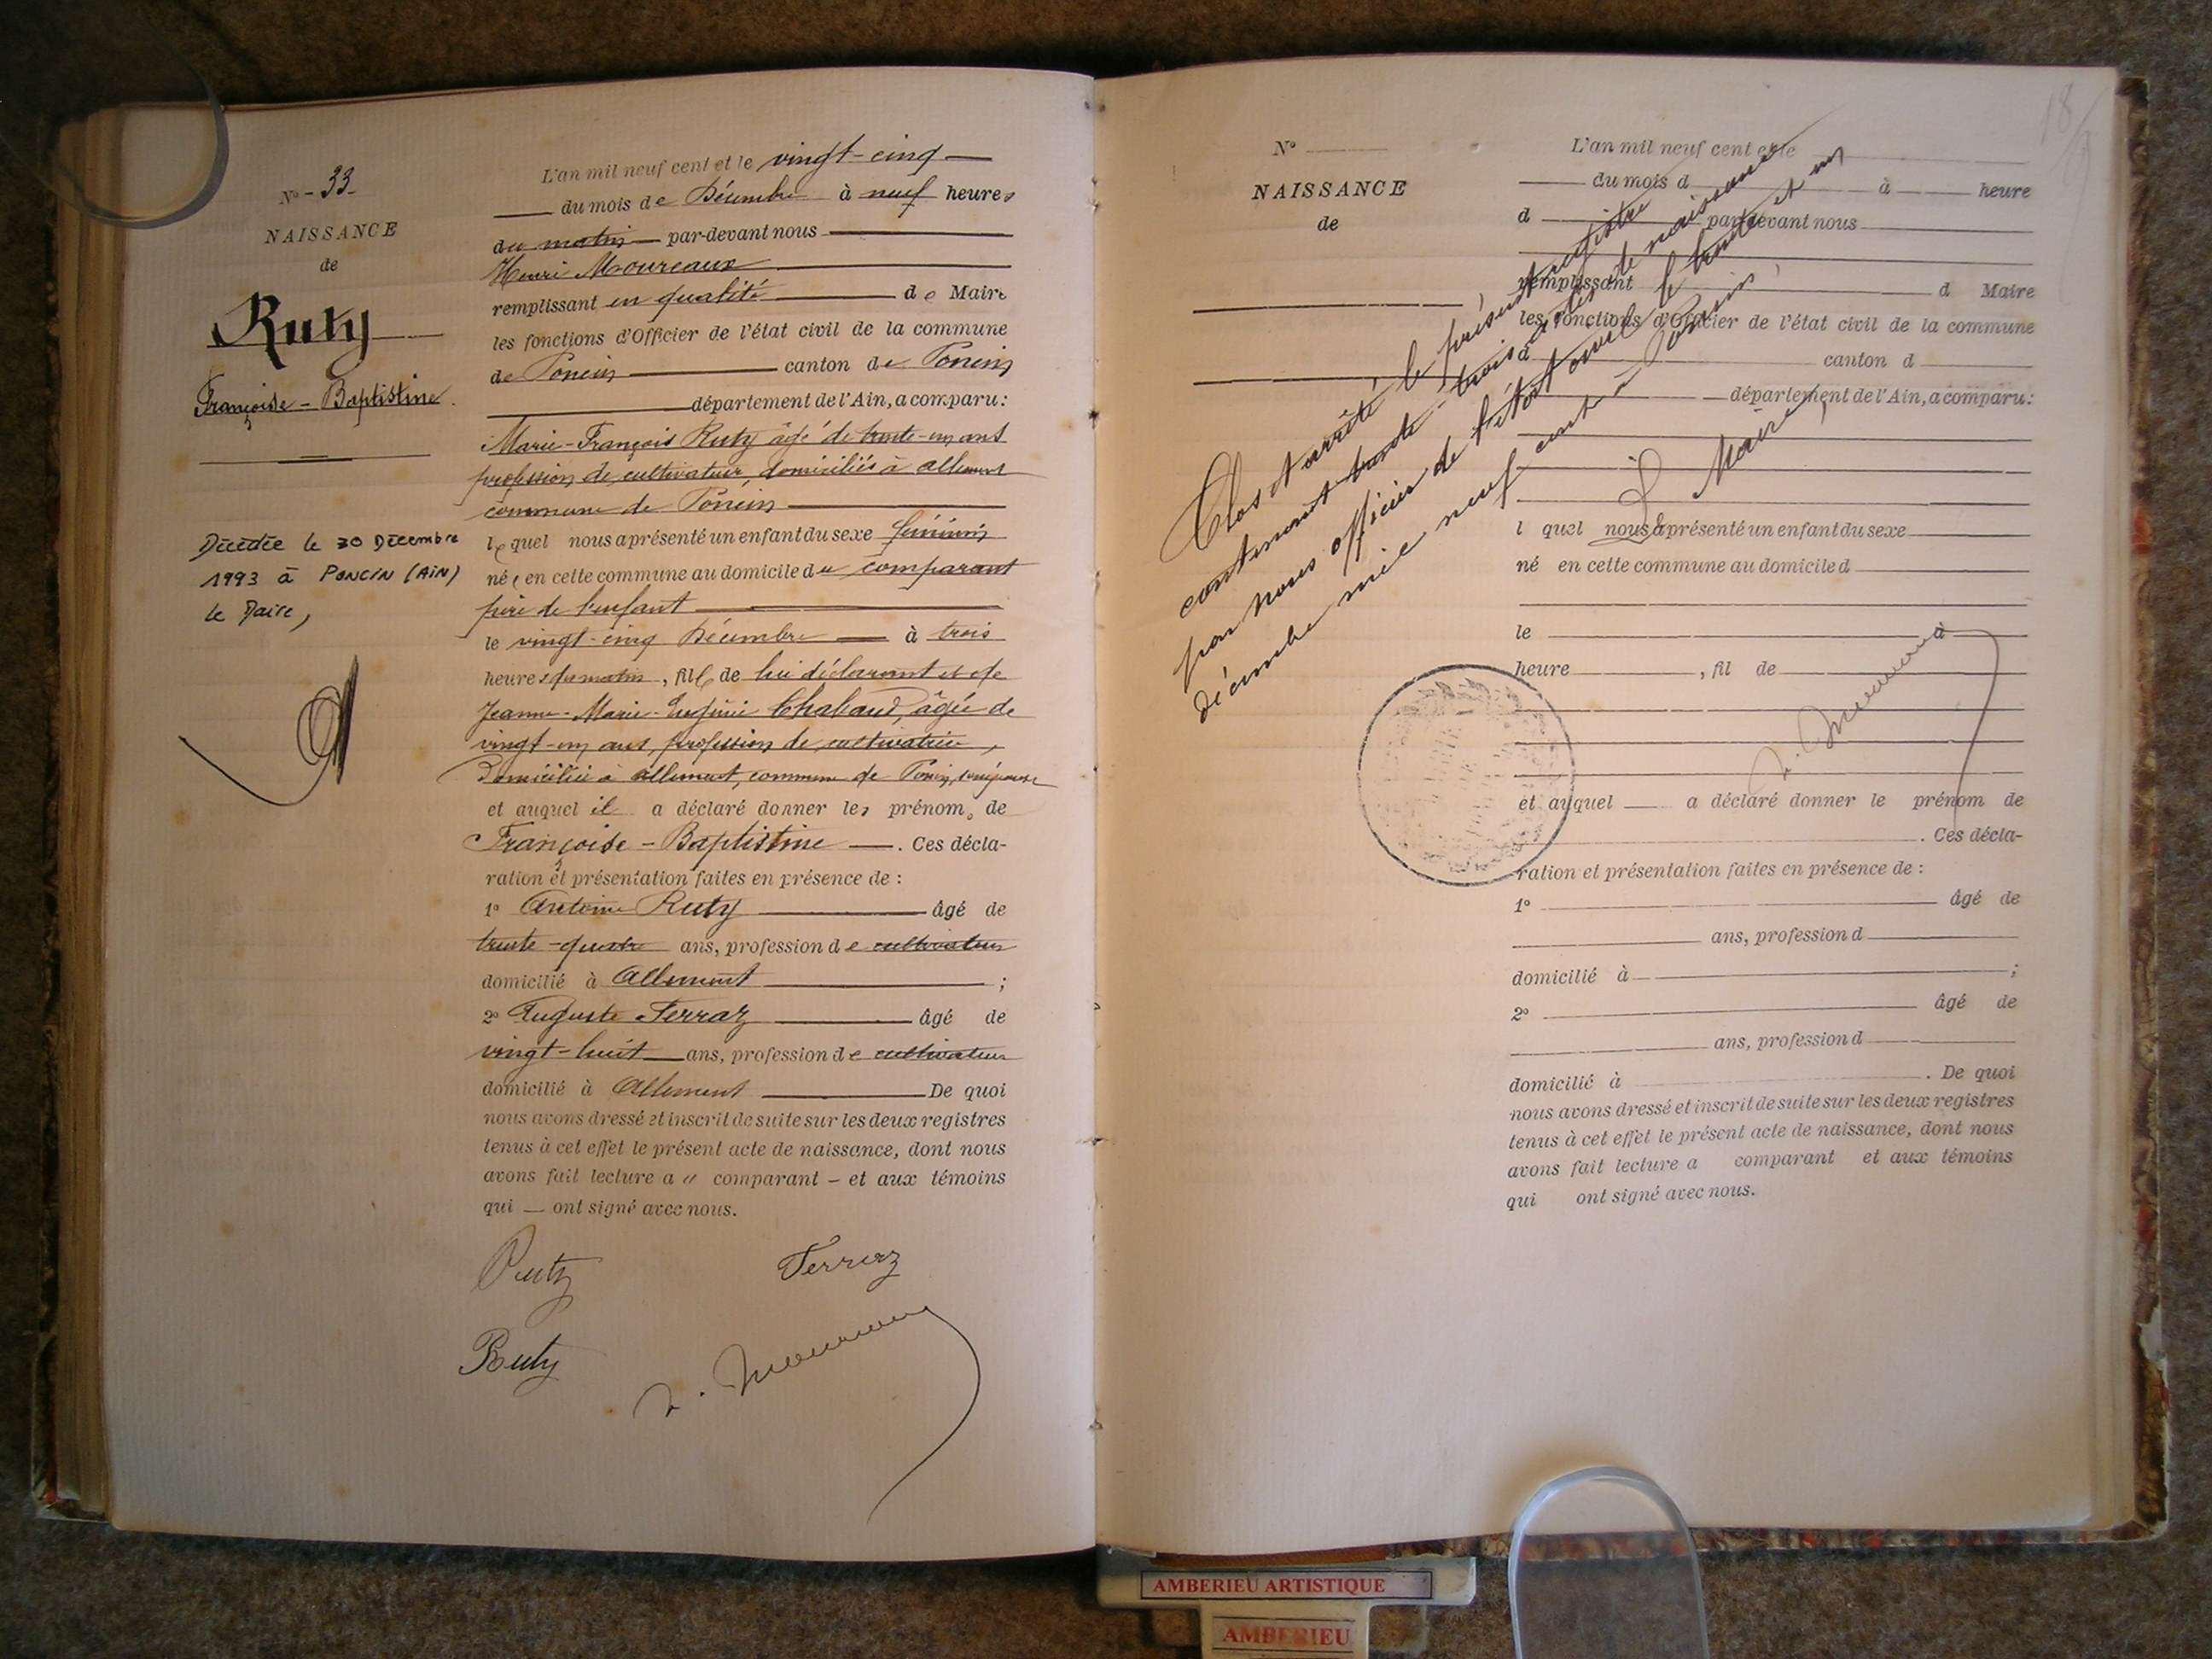 N° - 33 -
NAISSANCE
de
Ruty
Françoise - Baptistine.
Décédée le 30 Décembre
1993 à PONCIN (AiN)
le Maire,
L'an mil neuf cent et le vingt-cinq
du mois de Décembre à neuf heures
du matin par-devant nous
Henri Moureaux
remplissant en qualité de Maire
les fonctions d'Officier de l'état civil de la commune
de Poncin canton de Poncin
département de l'Ain, a comparu:
Marie-François Ruty âgé de trente-un ans
profession de cultivateur, domicilié à Allement
commune de Poncin
lequel nous a présenté un enfant du sexe féminin
née en cette commune au domicile du comparant
père de l'enfant
le vingt-cinq Décembre à trois
heures du matin, fille de lui déclarant et de
Jeanne-Marie-Eugénie Chabaud, âgée de
vingt-un ans, profession de cultivatrice,
domiciliée à Allement, commune de Poncin, son épouse
et auquel il a déclaré donner les prénoms de
Françoise - Baptistine. Ces décla-
ration et présentation faites en présence de :
1° Antoine Ruty âgé de
trente-quatre ans, profession de cultivateur
domicilié à Allement ;
2° Auguste Ferraz âgé de
vingt-huit ans, profession de cultivateur
domicilié à Allement De quoi
nous avons dressé et inscrit de suite sur les deux registres
tenus à cet effet le présent acte de naissance, dont nous
avons fait lecture au comparant - et aux témoins
qui — ont signé avec nous.
Ruty Ferraz
Ruty
18
N°
NAISSANCE
de
L'an mil neuf cent et le
du mois d à heure
d par-devant nous
remplissant d Maire
les fonctions d'Officier de l'état civil de la commune
d canton d
département de l'Ain, a comparu:
l quel nous a présenté un enfant du sexe
né en cette commune au domicile d
le à
heure , fil de
et auquel a déclaré donner le prénom de
. Ces décla-
ration et présentation faites en présence de :
1° âgé de
ans, profession d
domicilié à ;
2° âgé de
ans, profession d
domicilié à . De quoi
nous avons dressé et inscrit de suite sur les deux registres
tenus à cet effet le présent acte de naissance, dont nous
avons fait lecture a comparant et aux témoins
qui ont signé avec nous.
Clos et arrêté le présent registre
contenant trente-trois actes de naissance
par nous officier de l'état civil le trente et un
décembre mil neuf cent à Poncin
Le Maire,
AMBERIEU ARTISTIQUE
AMBERIEU